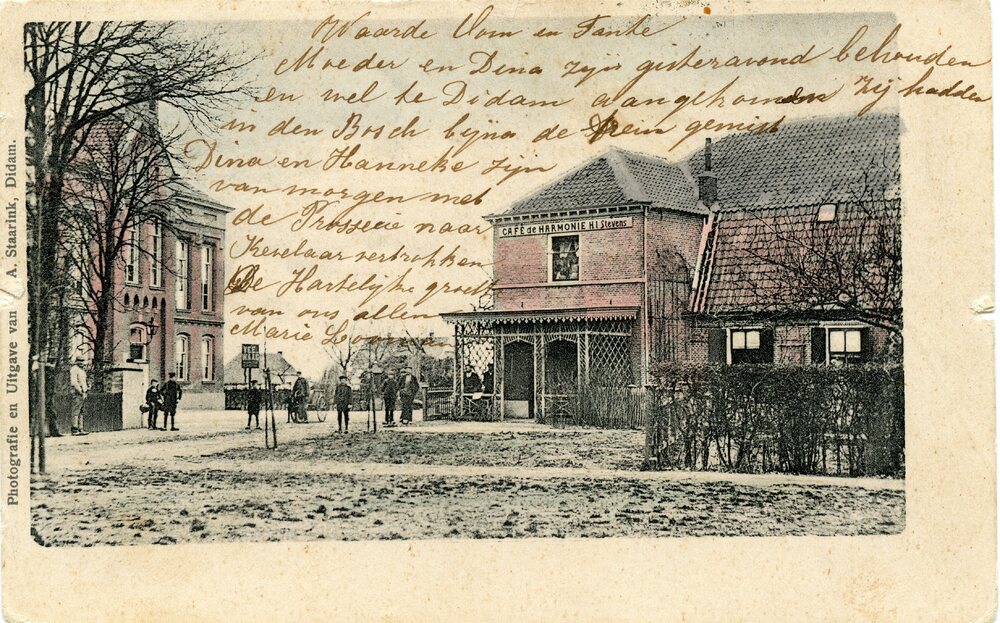 Waarde Oom en Tante
Moeder en Dina zijn gisteravond behouden
en wel te Didam aangekomen Zij hadden
in den Bosch bijna de trein gemist
Dina en Hanneke zijn
van morgen met
de Prossecie naar
Kevelaar vertrokken
De Hartelijke groeten
van ons allen
Marie
CAFÉ de HARMONIE H.I Stevens
Photografie en Uitgave van A. Staarink, Didam.